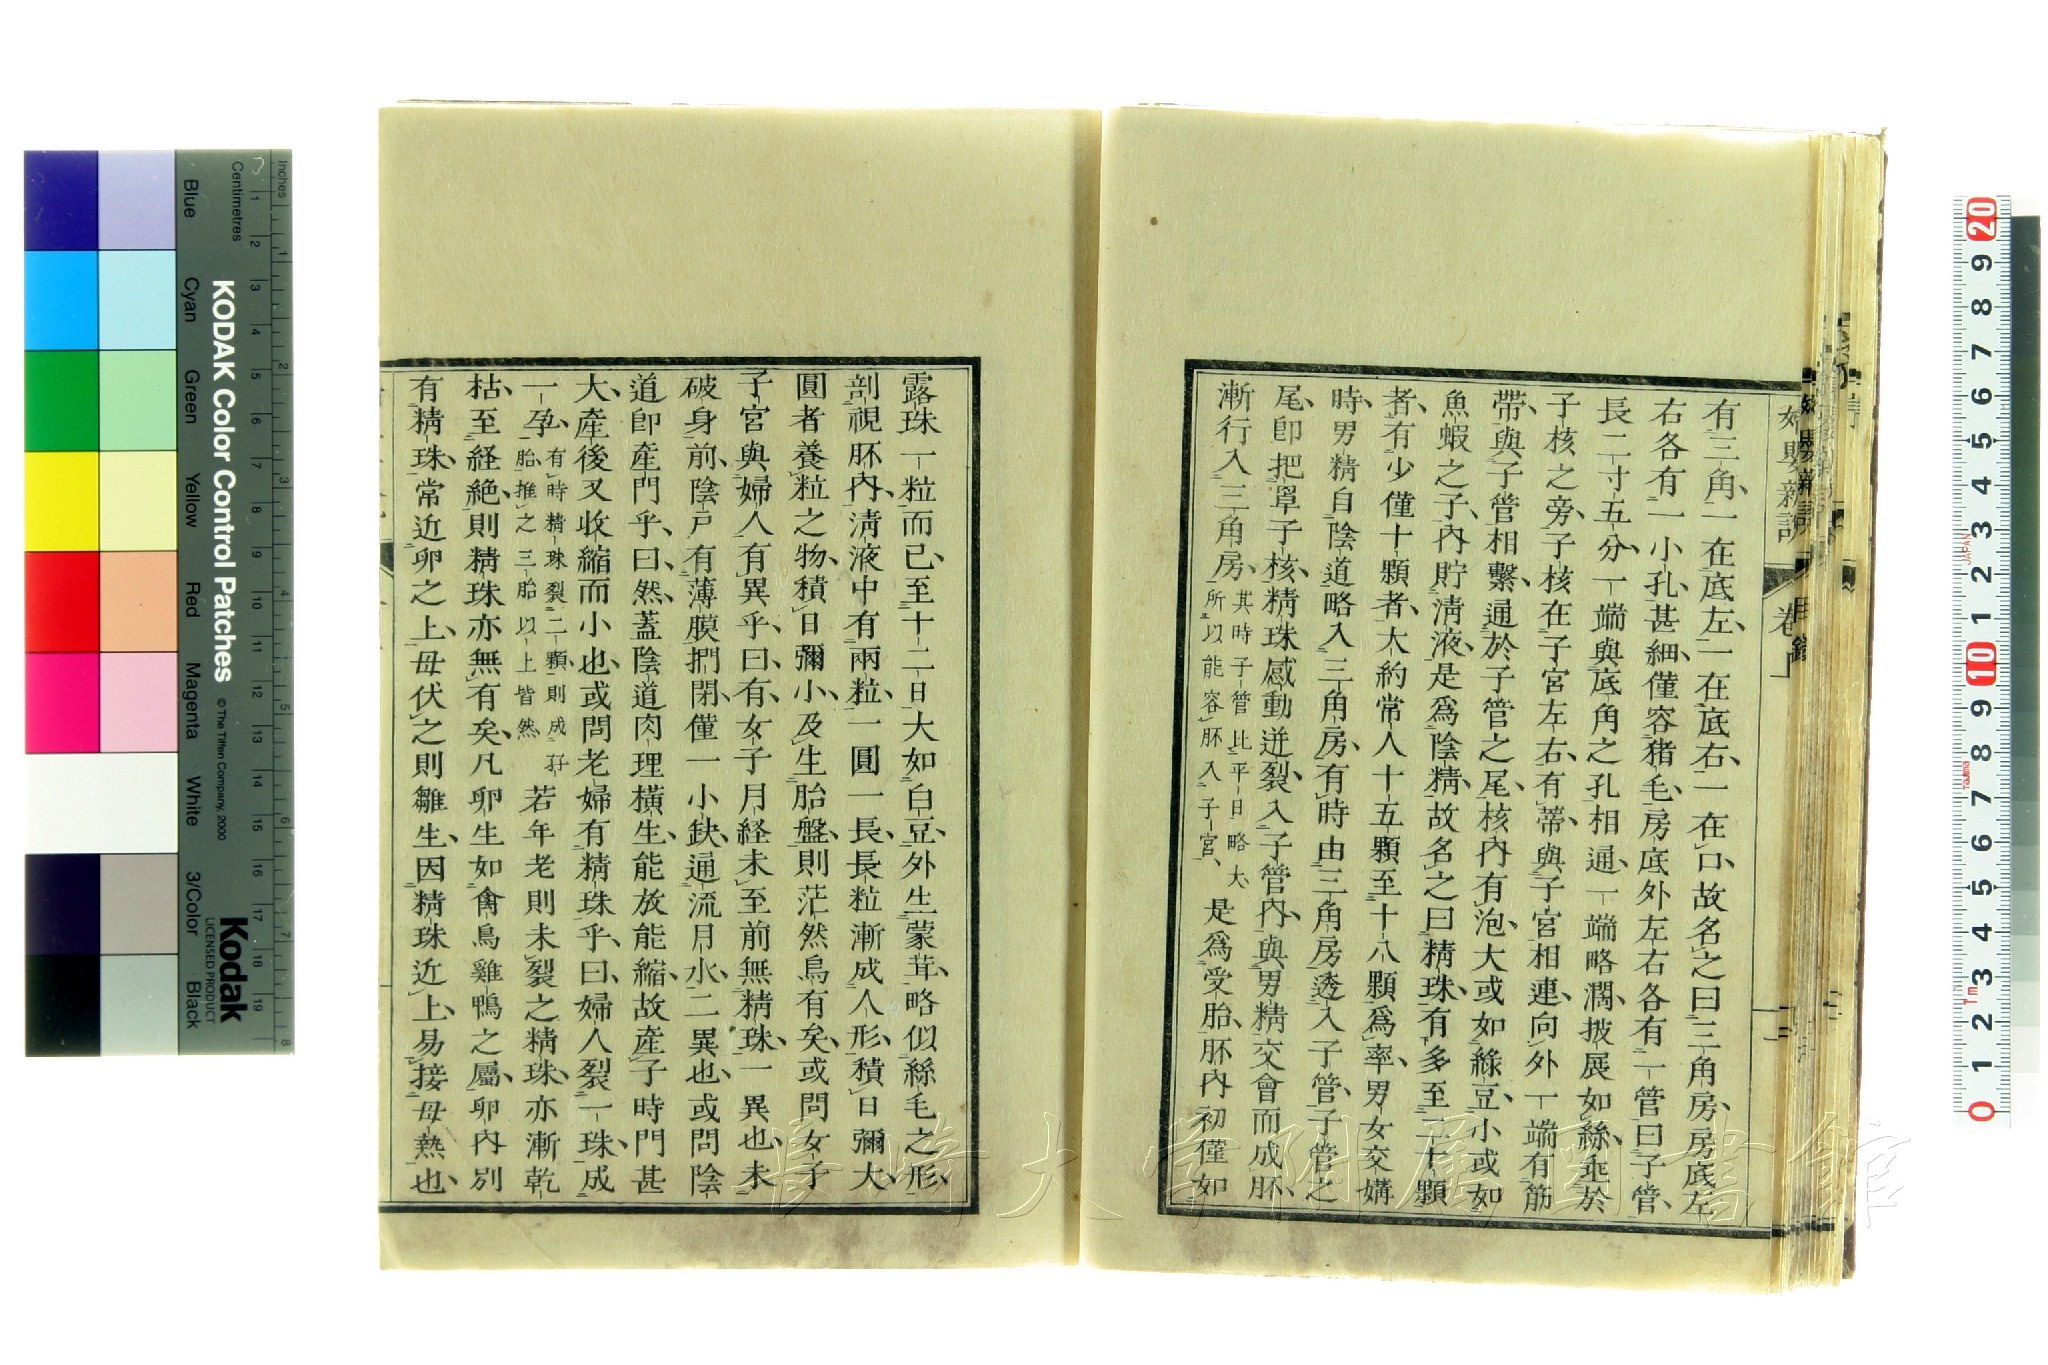 婦嬰新説
卷上
有三角、一在底左、一在底右、一在口、故名之曰三角房、房底左
右各有一小孔、甚細、僅容猪毛、房底外左右各有一管曰子管、
長二寸五分、一端與底角之孔相通、一端略濶、披展如絲、垂於
子核之旁、子核在子宮左右、有蒂、與子宮相連、向外一端有筋
帶、與子管相繫、通於子管之尾、核内有泡、大或如綠豆、小或如
魚蝦之子、内貯淸液、是爲陰精、故名之曰精珠、有多至二十顆
者、有少僅十顆者、大約常人十五顆至十八顆爲率、男女交媾
時、男精自陰道略入三角房、有時由三角房透入子管、子管之
尾、卽把罩子核、精珠感動迸裂、入子管内、與男精交會而成胚、
漸行入三角房、其時子管比平日略大、所以能容胚入子宮、是爲受胎、胚内初僅如
露珠一粒而已、至十二日大如白豆、外生蒙茸、略似絲毛之形、
剖視胚内、淸液中有兩粒、一圓一長、長粒漸成人形、積日彌大、
圓者養粒之物、積日彌小、及生胎盤、則茫然烏有矣、或問女子
子宮與婦人有異乎、曰、有、女子月経未至前無精珠、一異也、未
破身前、陰戶有薄膜捫閉、僅一小缺、通流月水、二異也、或問陰
道卽產門乎、曰、然、蓋陰道肉理橫生、能放能縮、故產子時門甚
大、產後又收縮而小也、或問老婦有精珠乎、曰、婦人裂一珠、成
一孕、有時精珠裂二顆、則成孖胎、推之三胎以上皆然、若年老則未裂之精珠、亦漸乾
枯、至経絶、則精珠亦無有矣、凡卵生如禽鳥雞鴨之屬、卵内別
有精珠、常近卵之上、母伏之則雛生、因精珠近上、易接母熱也、
長崎大学附属図書館
KODAK Color Control Patches
© The Tiffen Company, 2000
Kodak
LICENSED PRODUCT
Inches
Centimetres
Blue
Cyan
Green
Yellow
Red
Magenta
White
3/Color
Black